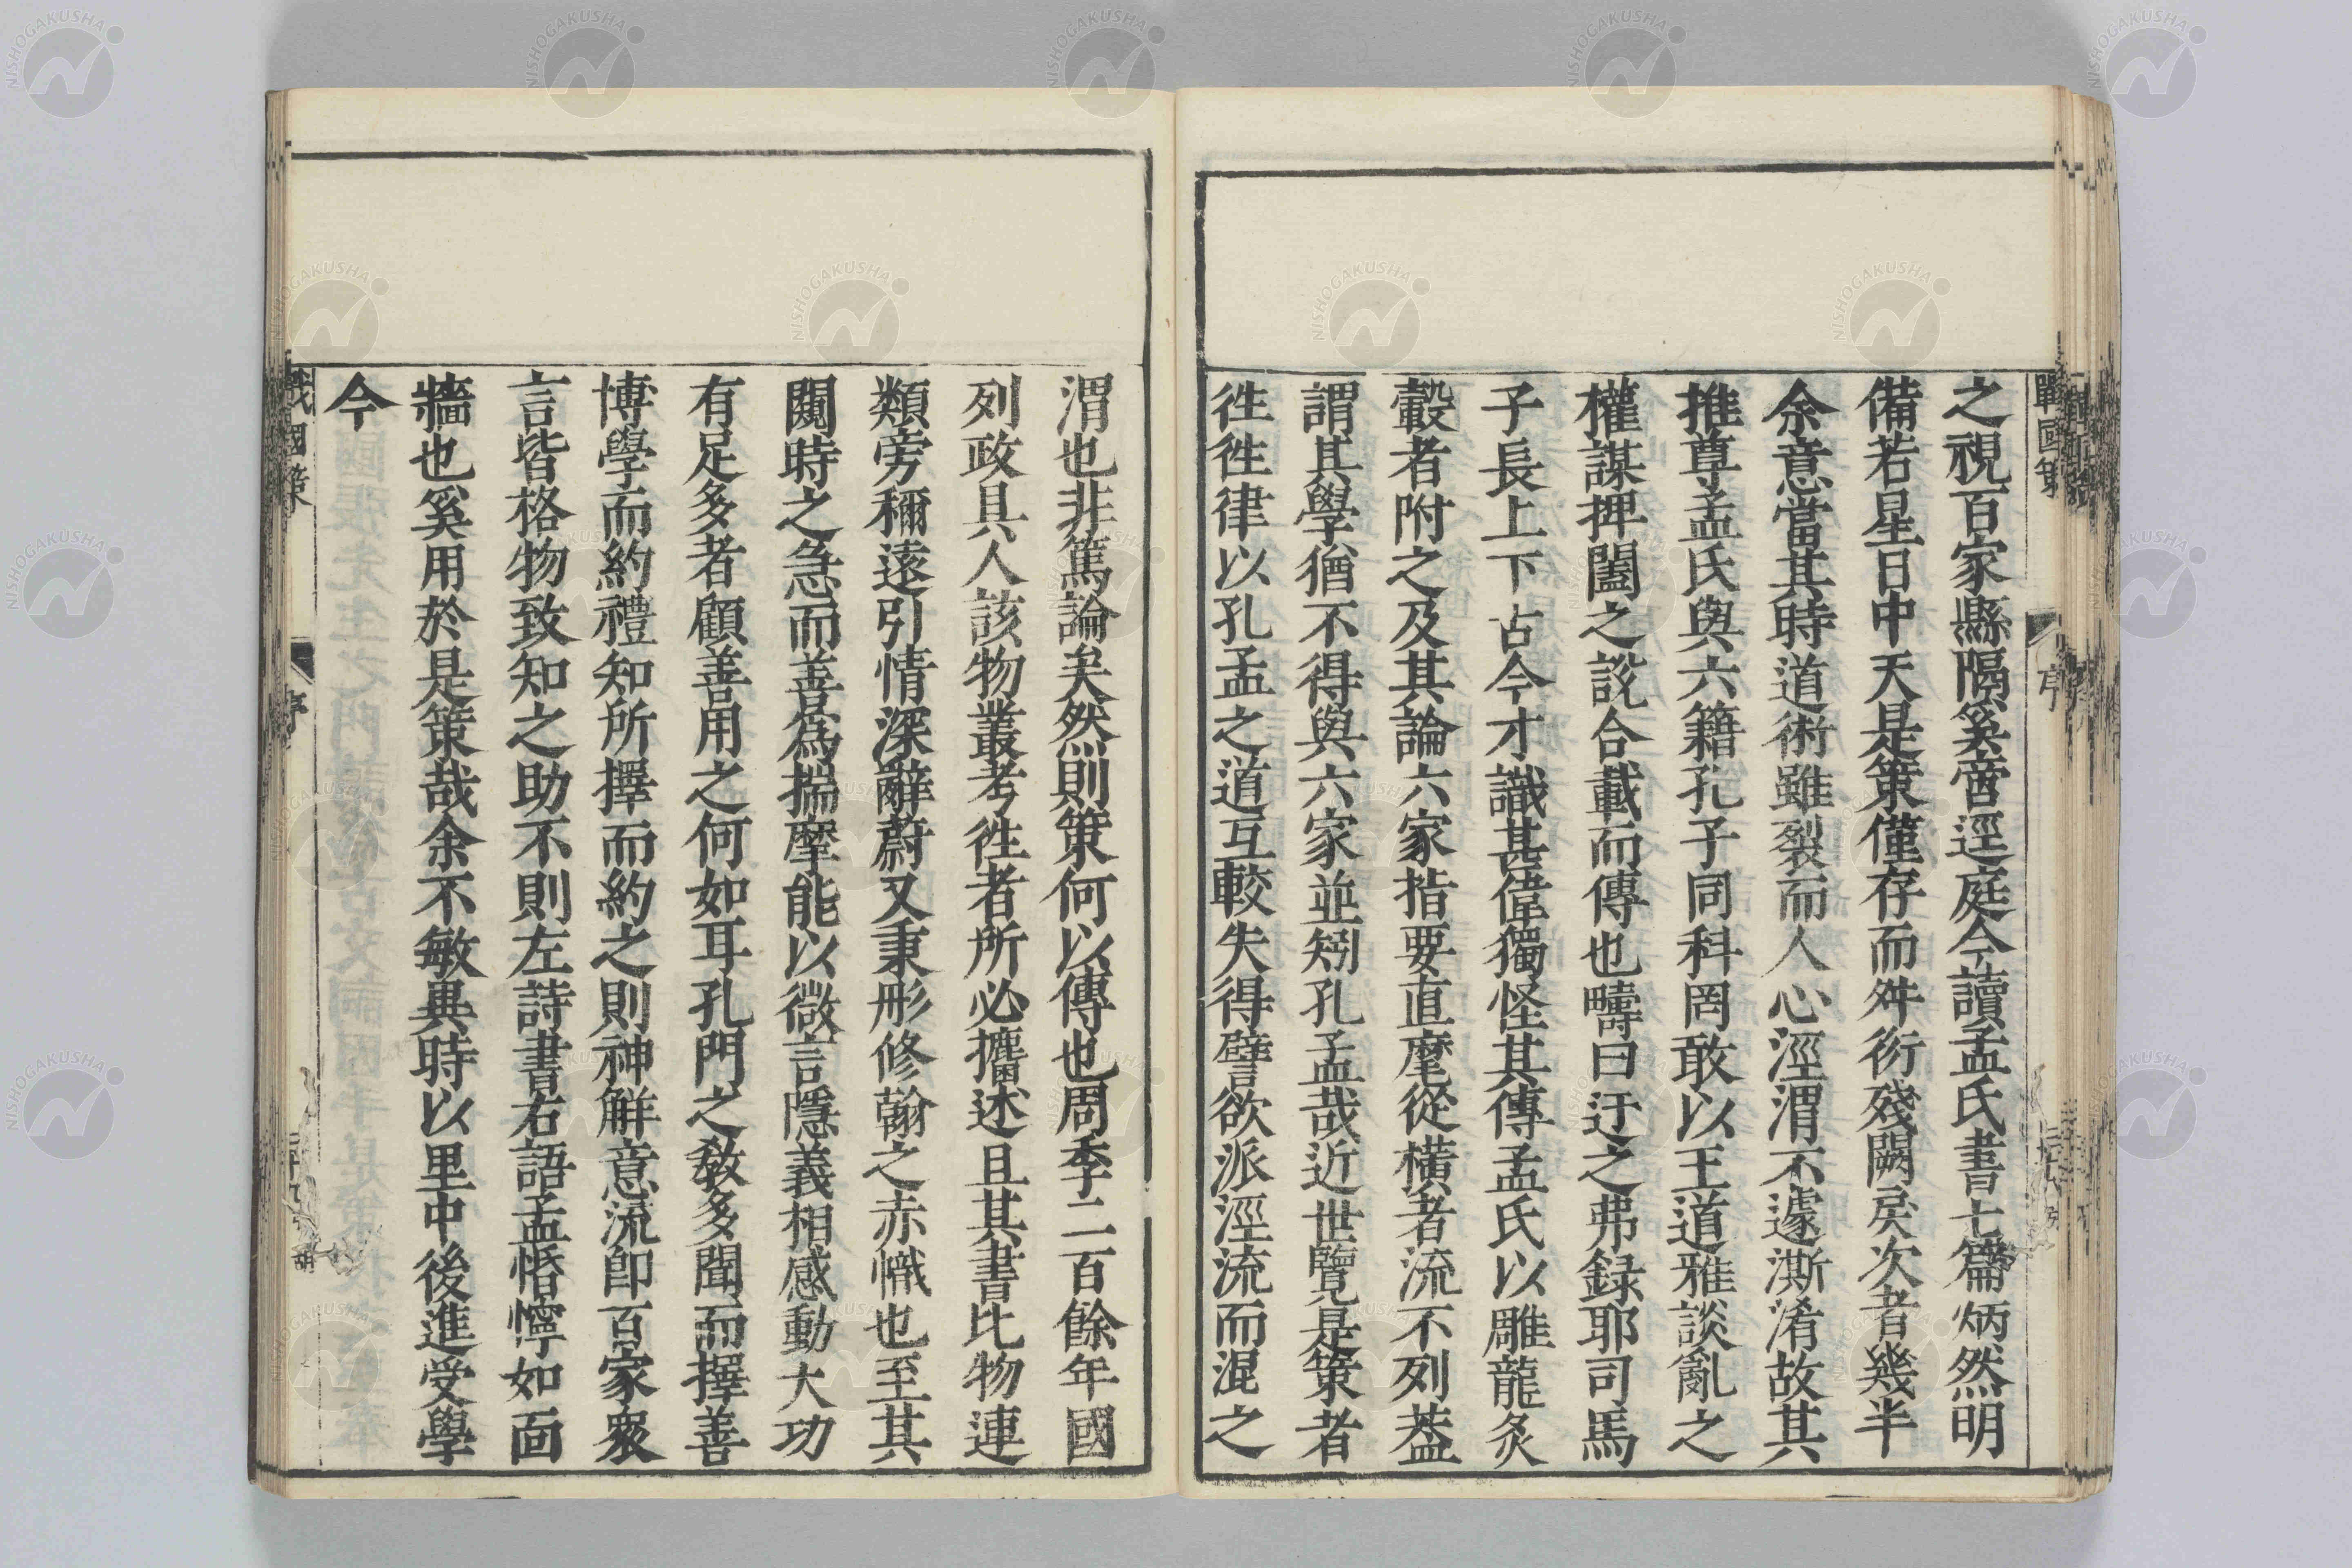 之視百家縣隔奚啻逕庭今讀孟氏書七篇炳然明
備若星日中天是策僅存而舛衍殘闕戾次者幾半
余意當其時道術雖裂而人心涇渭不遽澌淆故其
推尊孟氏與六籍孔子同科罔敢以王道雅談亂之
權謀捭闔之說合載而傳也疇曰迂之弗録耶司馬
子長上下古今才識甚偉獨怪其傳孟氏以雕龍炙
轂者附之及其論六家指要直麾從橫者流不列葢
謂其學猶不得與六家並矧孔孟哉近世覽是策者
徃徃律以孔孟之道互較失得譬欲派涇流而混之
渭也非篤論矣然則策何以傳也周季二百餘年國
列政具人該物叢考徃者所必攟述且其書比物連
類旁稱遠引情深辭蔚又秉彤修翰之赤幟也至其
闚時之急而善爲揣摩能以微言隱義相感動大功
有足多者顧善用之何如耳孔門之敎多聞而擇善
博學而約禮知所擇而約之則神解意流卽百家衆
言皆格物致知之助不則左詩書右語孟惛懧如面
牆也奚用於是策哉余不敏異時以里中後進受學
今
戰國策
序
戰國策
序
NISHOGAKUSHA